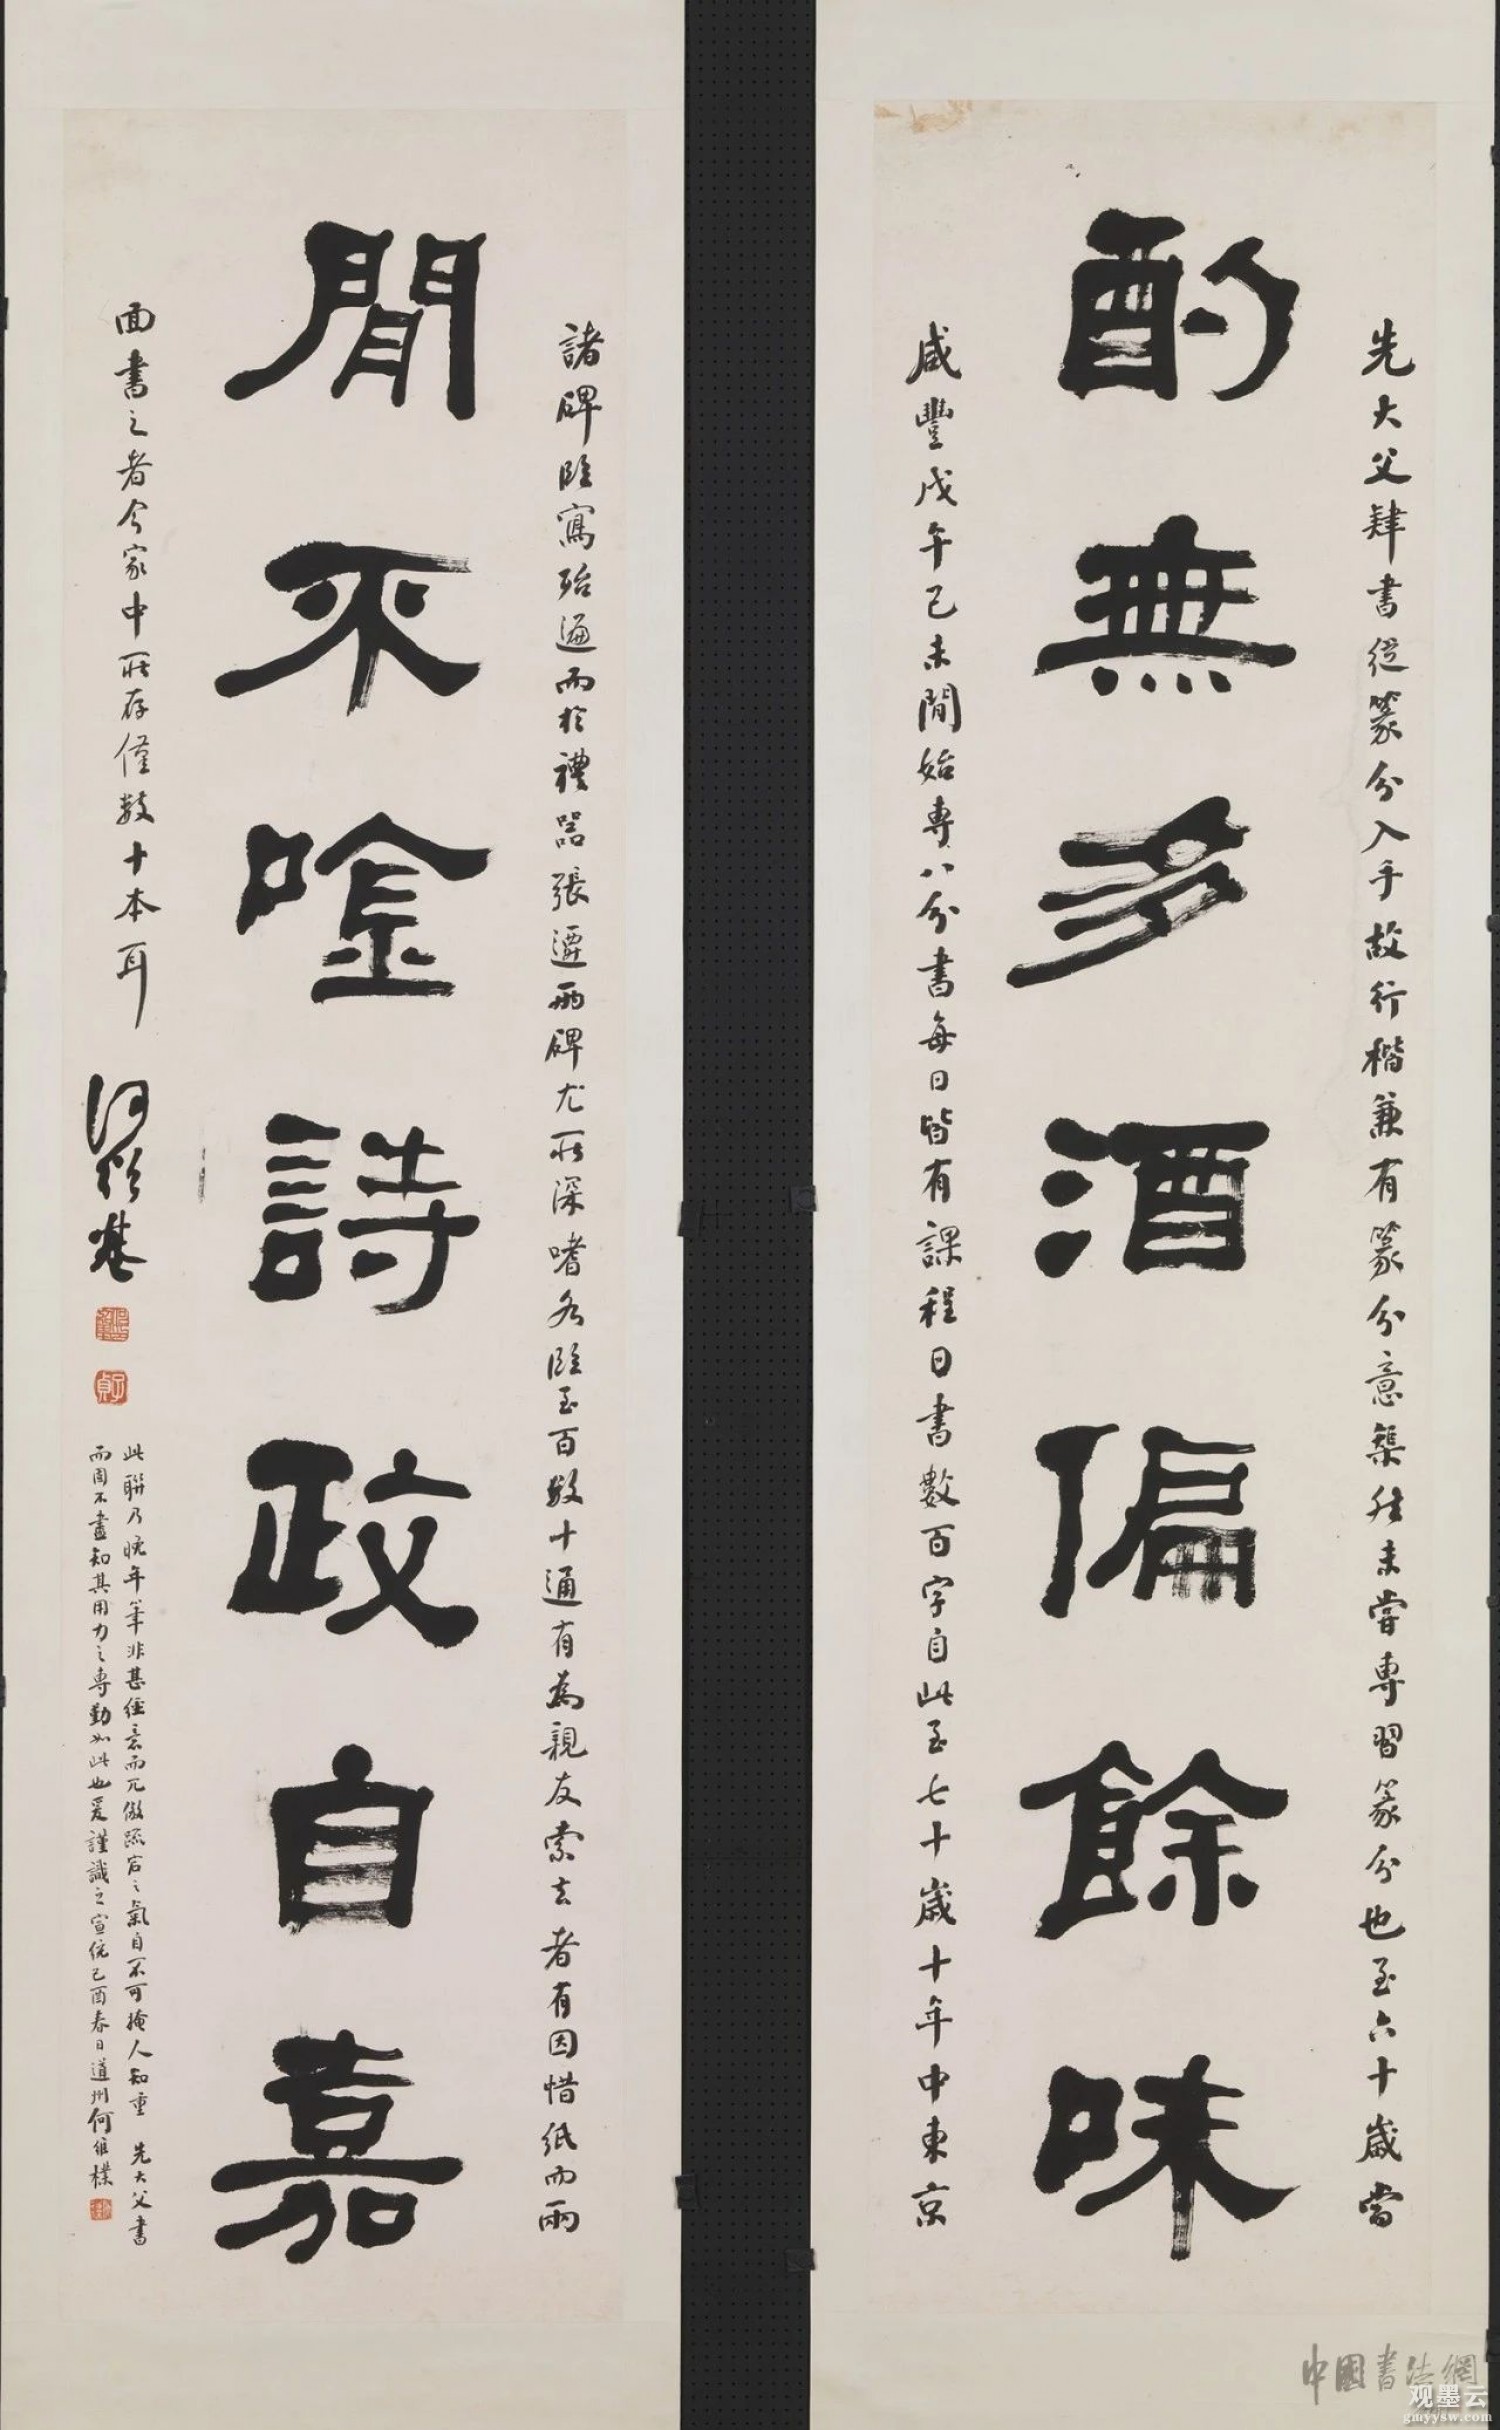 酌無多酒偏餘味
先大父肄書從篆分入手故行楷兼有篆分意築然未嘗專習篆分也至六十歲當
咸豐戊午己未間始專八分書每日皆有課程日書數百字自此至七十歲十年中東京
閒不唫詩政自嘉
諸碑臨寫殆遍而於禮器張遷兩碑尤所深嗜各臨至百數十通有為親友索去者有因惜紙而兩
面書之者今家中所存僅數十本耳
此聯乃晚年筆非甚經意而兀傲跅宕之氣自不可掩人知重 先大父書
而固不盡知其用力之專勤如此也爰謹識之宣統己酉春日道州何維樸
中國書法網
观墨云
gmyysw.com